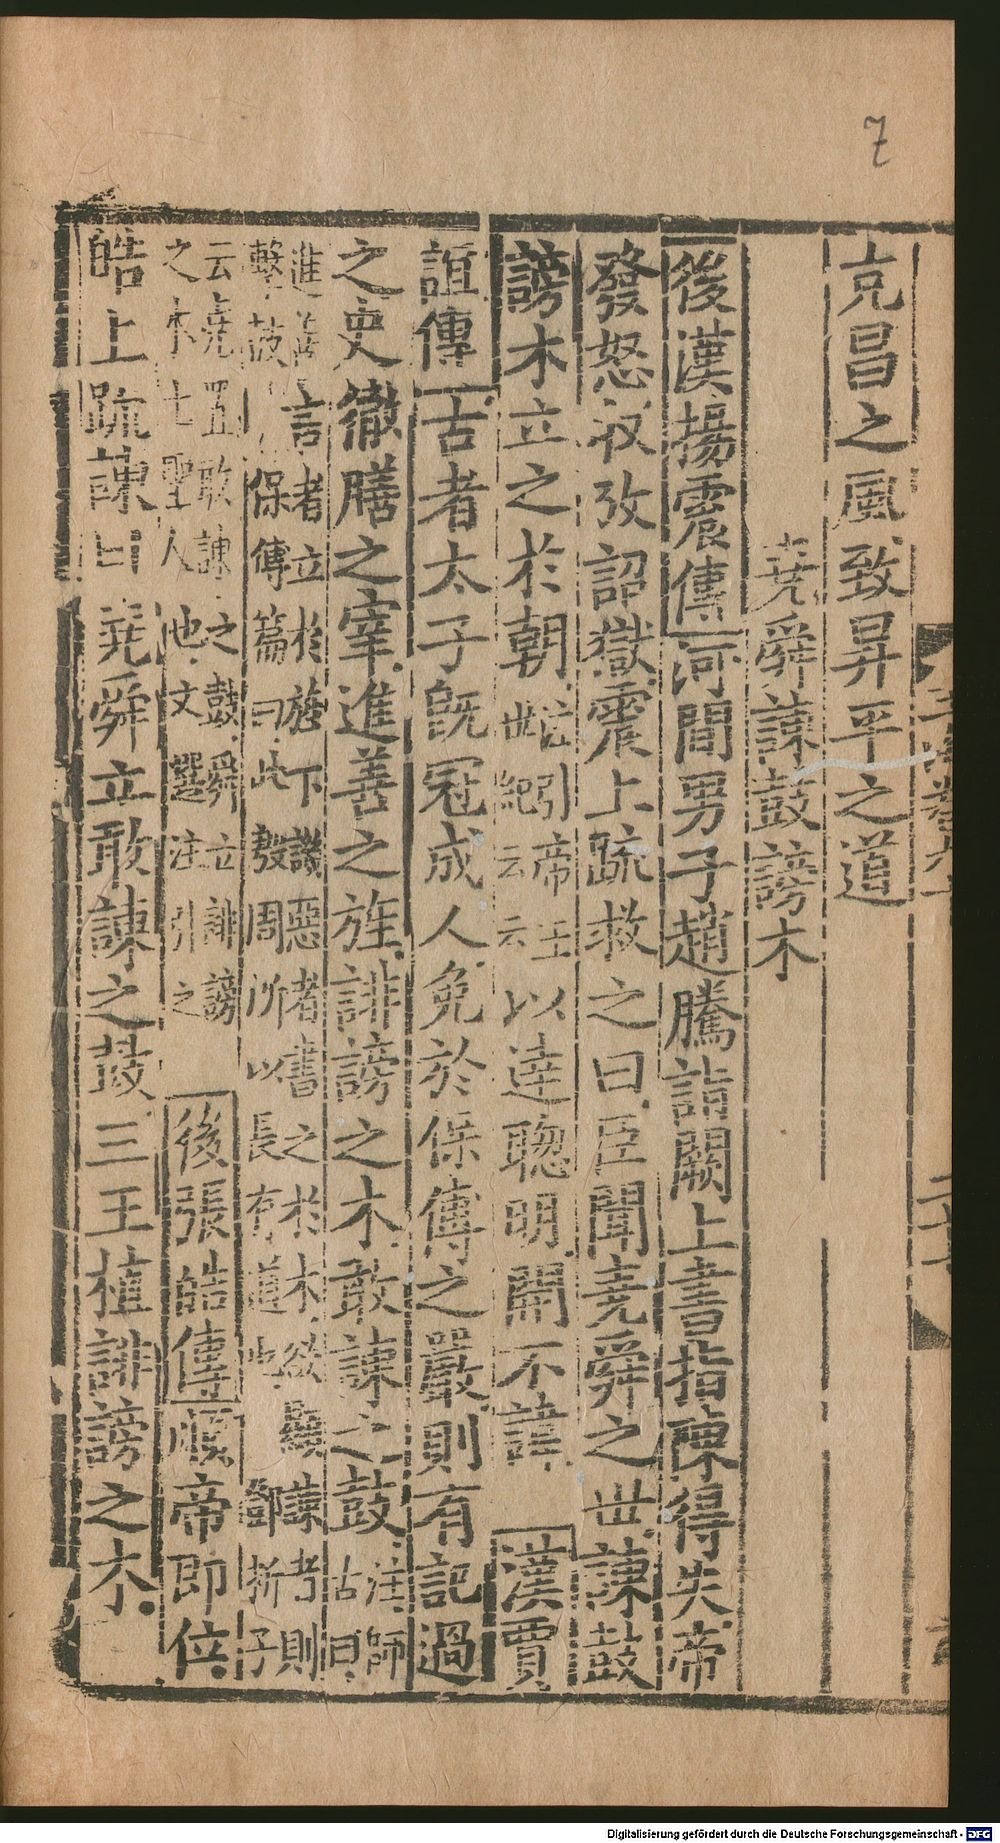 7
克昌之風致昇平之道
堯舜諫鼓謗木
後漢楊震傳河間男子趙騰詣闕上書指陳得失帝
發怒收攷詔獄震上疏救之曰臣聞堯舜之世諫鼓
謗木立之於朝注引帝王世紀云云以達聰明開不諱漢賈
誼傳古者太子旣冠成人免於保傅之嚴則有記過
之吏徹膳之宰進善之旌誹謗之木敢諫之鼓注師古曰
進善言者立於旌下譏惡者書之於木欲顯諫者則
擊鼓保傅篇曰此殷周所以長有道也鄧析子
云堯置敢諫之鼓舜立誹謗
之木七聖人也文選注引之後張皓傳順帝即位
皓上疏諫曰堯舜立敢諫之鼓三王植誹謗之木
Digitalisierung gefördert durch die Deutsche Forschungsgemeinschaft - DFG